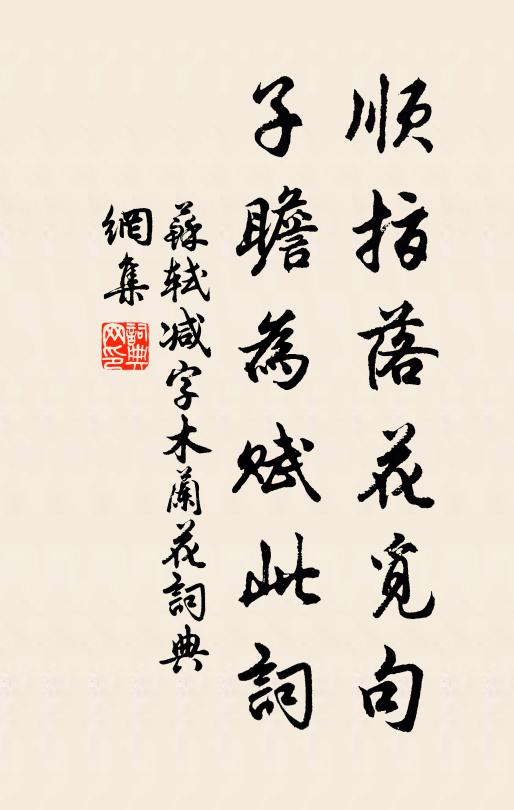 順指落花覓句
子瞻為賦此詞
蘇軾减字木蘭花詞典
網集
詞典
网印